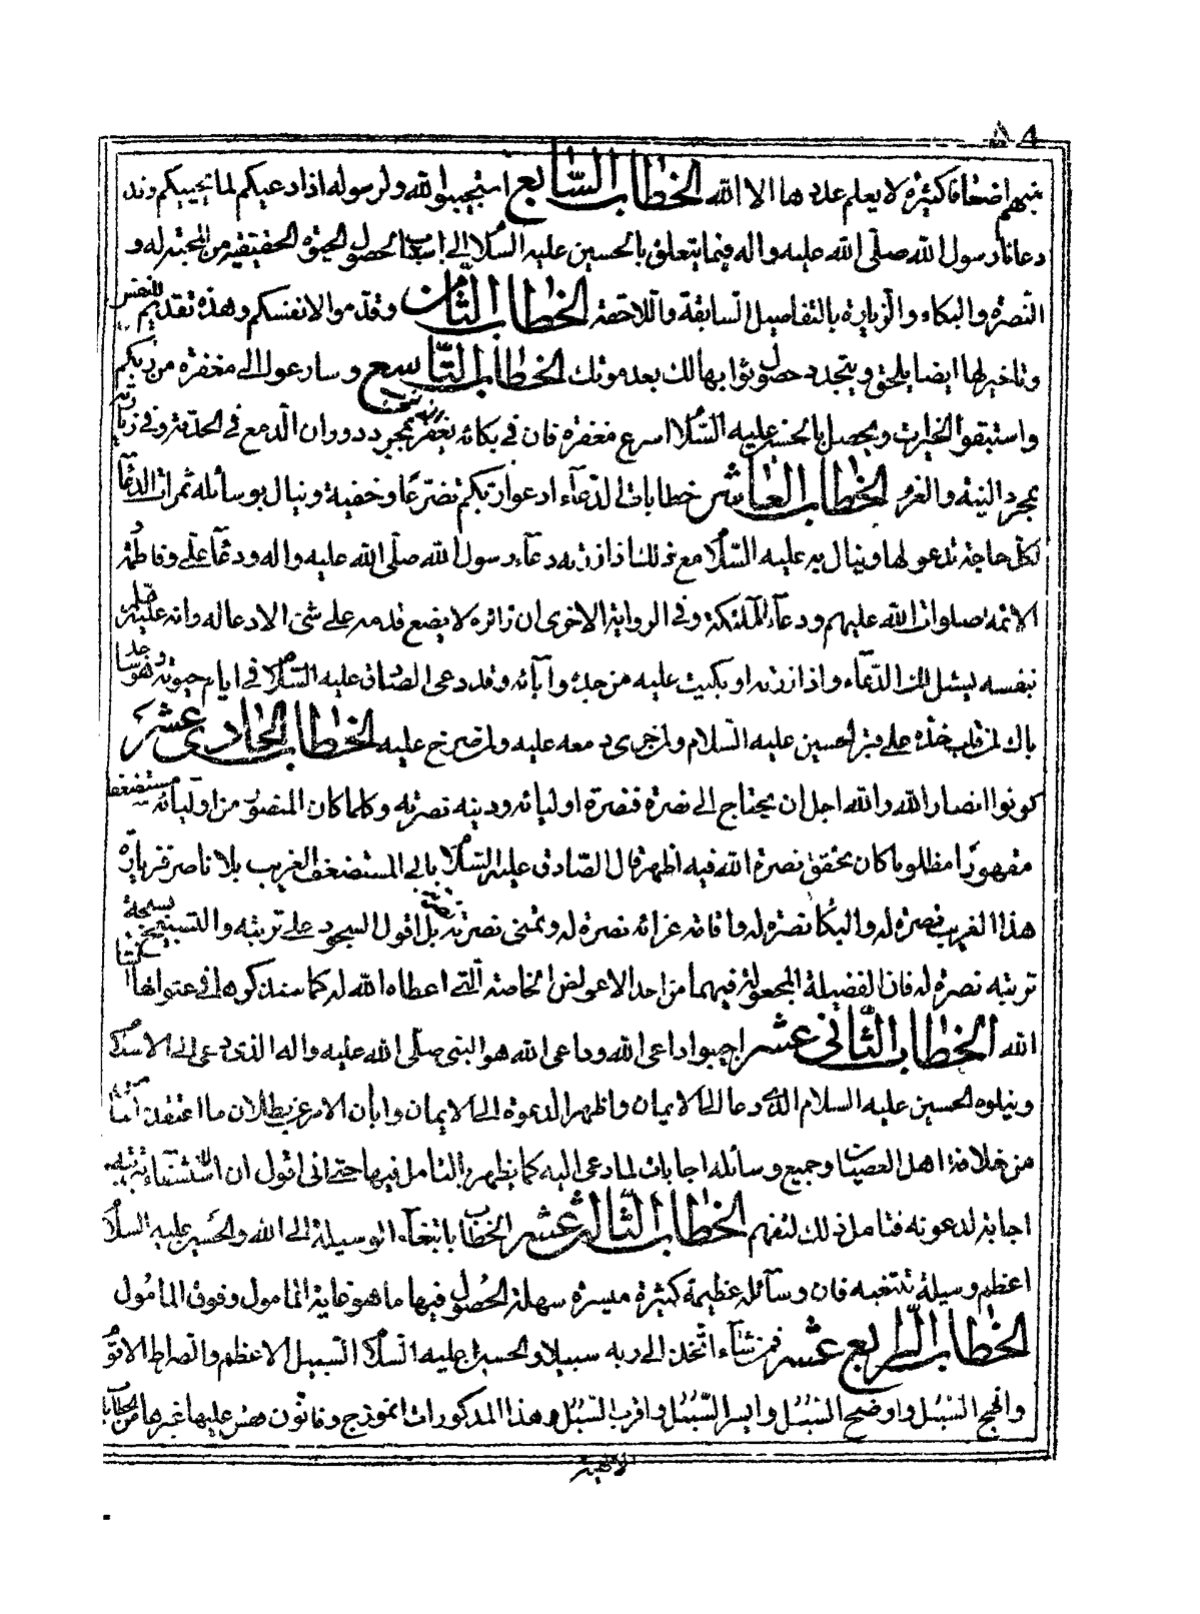 فيهم اضعافا كثيرة لا يعلم عددها الا الله الخطاب السابع استجيبوا لله ولرسوله اذا دعيكم لما يحييكم وقد
دعانا رسول الله صلّى الله عليه واله فيما يتعلق بالحسين عليه السلام الى اسباب لحصول الحيوة الحقيقية من المحبة له و
النّصرة والبكاء والزيارة بالتفاصيل السّابقة واللاحقة الخطاب الثامن وقدّموا لانفسكم وهذه تقديم للنفس
وتاخيرلها ايضا يلحق ويتجدد حصول ثوابها لك بعد موتك الخطاب التاسع وسارعوا الى مغفرة من ربكم
واستبقوا الخيرات ويحصل بالحسين عليه السّلام اسرع مغفرة فان في بكائه يغفر بمجرد دوران الدمع في الحدقة وفي زيارته
بمجرد النية والعزم الخطاب العاشر خطابات الدّعاء ادعوا ربكم تضرّعا وخفية وينال بوسائله ثمرات الدعاء
لكل حاجة تدعو لها وينال به عليه السّلام مع ذلك اذا زرته دعاء رسول الله صلّى الله عليه واله ودعاء علي وفاطمة و
الائمة صلوات الله عليهم ودعاء الملائكة وفي الرواية الاخرى ان زائره لا يضع قدمه على شئ الا دعا له وانه عليه
بنفسه يسئل لك الدّعاء واذا زرته او بكيت عليه من جده وآبائه وقد دعى الصادق عليه السّلام في ايام حيوته وهو ساجد
باك لمن قلب خدّه على قبر الحسين عليه السّلام ولمن جرى دمعه عليه ولمن صرخ عليه الخطاب الحادي عشر
كونوا انصار الله والله اجل ان يحتاج الى نصرة فنصرة اوليائه ودينه نصرته وكلما كان المنصور من اوليائه مستضعفا
مقهورا مظلوما كان تحقق نصرة الله فيه اظهر قال الصادق عليه السّلام بابي المستضعف الغريب بلا ناصر فزيارة
هذا الغريب نصرة له والبكاء نصرة له واقامة عزائه نصرة له وتمنى نصرته نصرته بل اقول السجود على تربته والتسبيح بسبحة
تربته نصرة له فان الفضيلة المجعولة فيهما من احد الاعواض الخاصة التي اعطاه الله له كما سنذكرها في عنوانها انشاء
الله الخطاب الثاني عشر اجيبوا داعي الله وداعي الله هو النبي صلّى الله عليه واله الذي دعى الى الاسلام
ويتلوه الحسين عليه السلام الذي دعا الى الايمان واظهر الدعوة الى الايمان وابان الامر عن بطلان ما اعتقدته الامة
من خلافة اهل العصيان وجميع وسائله اجابات لما دعى اليه كما يظهر بالتامل فيها حتى اني اقول ان الاستشفاء بتربته
اجابة لدعوته فتامل ذلك لتفهم الخطاب الثالث عشر الخطاب بابتغاء الوسيلة الى الله والحسين عليه السلام
اعظم وسيلة تبتغيه فان وسائله عظيمة كثيرة ميسرة سهلة الحصول فيها ما هو غاية المامول وفوق المامول
الخطاب الرابع عشر فمن شاء اتّخذ الى ربه سبيلا والحسين عليه السّلام السّبيل الاعظم والصراط الاقوم
وانهج السّبل واوضح السّبل وايسر السّبل واقرب السّبل وهذا المذكورات انموذج وقانون فقس عليها غيرها من الخطابات
الالهية